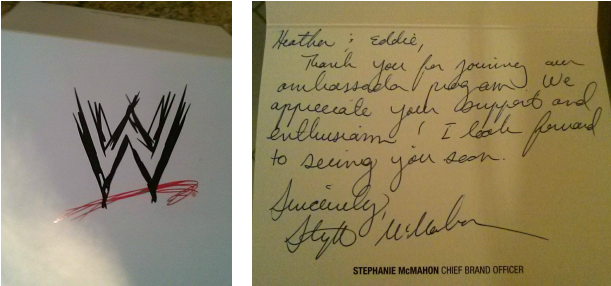 W
Heather & Eddie,
Thank you for joining our
ambassador program. We
appreciate your support and
enthusiasm! I look forward
to seeing you soon.
Sincerely,
Steph McMahon
STEPHANIE McMAHON CHIEF BRAND OFFICER